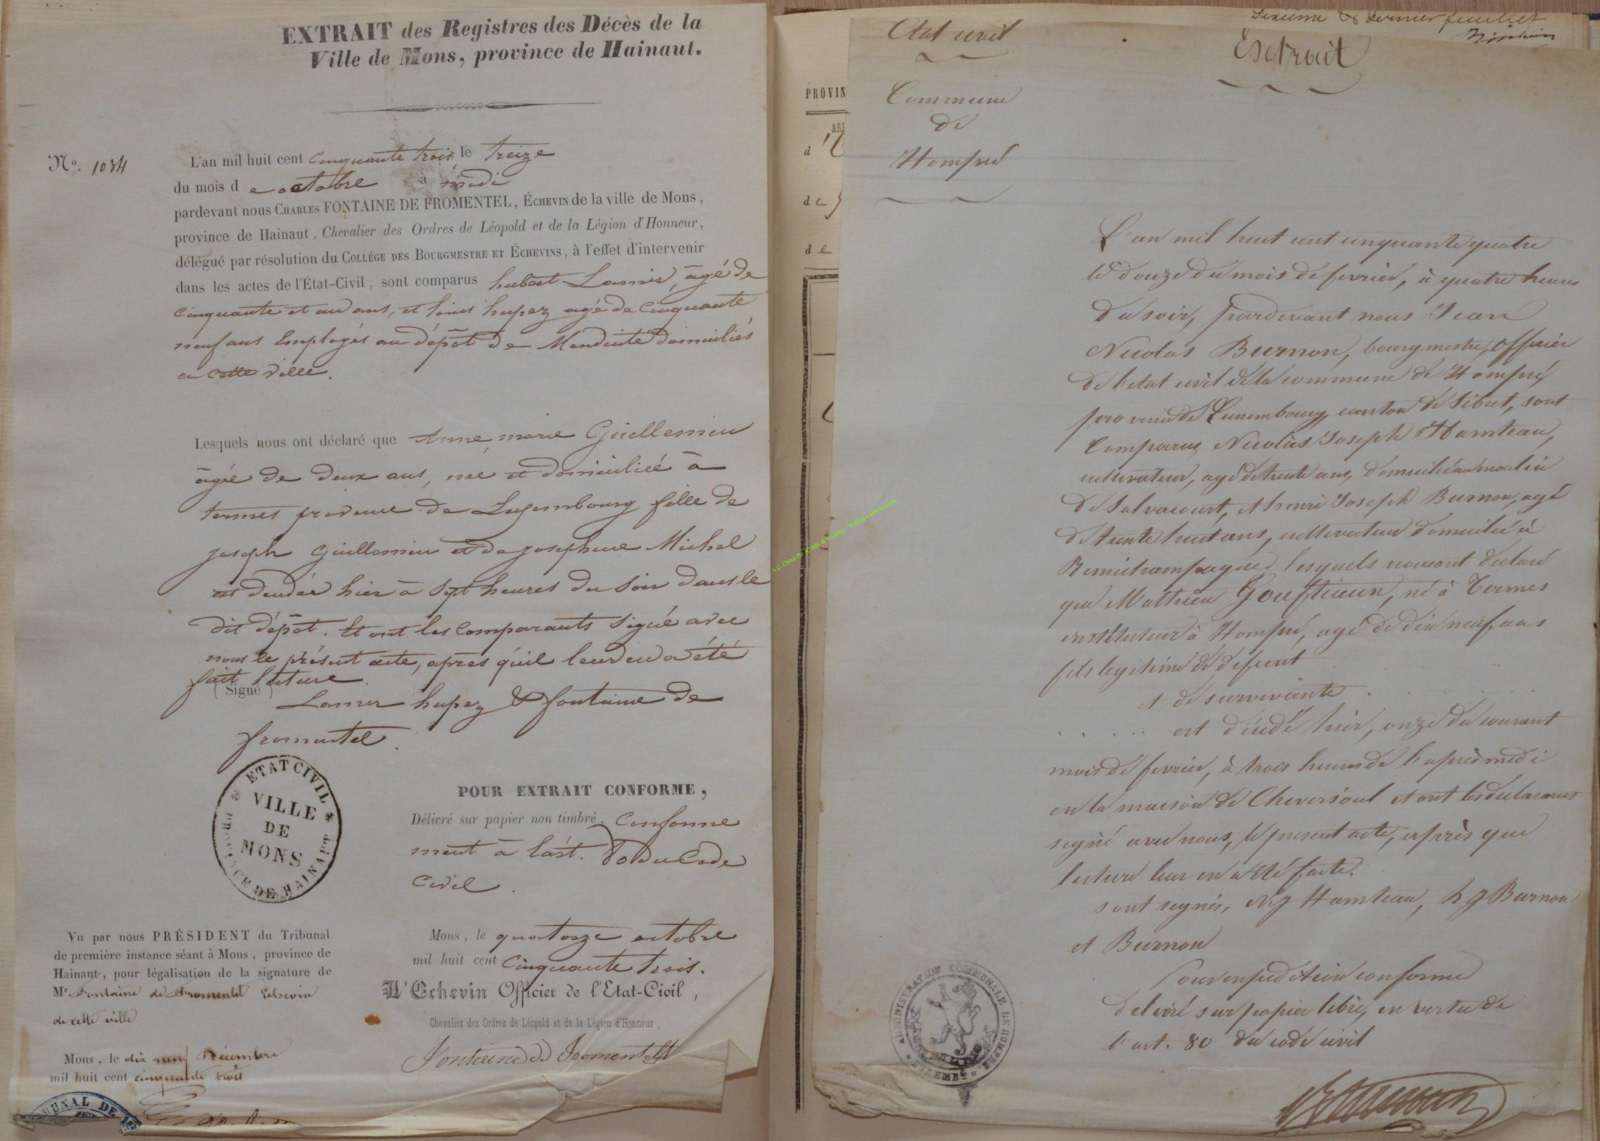 EXTRAIT des Registres des Décès de la
Ville de Mons, province de Hainaut.
N°. 1034
L'an mil huit cent cinquante trois le treize
du mois d e octobre à midi
pardevant nous CHARLES FONTAINE DE FROMENTEL, ÉCHEVIN de la ville de Mons,
province de Hainaut, Chevalier des Ordres de Léopold et de la Légion d'Honneur,
délégué par résolution du COLLÉGE DES BOURGMESTRE ET ÉCHEVINS, à l'effet d'intervenir
dans les actes de l'État-Civil, sont comparus hubert Lamir, âgé de
cinquante et un ans, et hupez agé de cinquante
neuf ans Employés au dépôt de Mendicité domiciliés
a cette ville.
Lesquels nous ont déclaré que Anne marie Guillemin
âgée de deux ans, née et domiciliée à
termes province de Luxembourg fille de
joseph Guillemin et de josephine Michel
est décédée hier à sept heures du soir dans le
dit dépôt. Et ont les comparants signé avec
nous le présent acte, après qu'il leur en a été
fait lecture.
(Signé)
Lamir hupez & fontaine de
fromentel.
ETAT CIVIL
VILLE
DE
MONS
PROVINCE DE HAINAUT
POUR EXTRAIT CONFORME,
Délivré sur papier non timbré, Conforme
ment à l'ast. 80 du Code
Civil.
Mons, le quatorze octobre
mil huit cent cinquante trois.
L'Echevin Officier de l'Etat-Civil,
Chevalier des Ordres de Léopold et de la Légion d'Honneur,
Fontaine de Fromentel
Vu par nous PRÉSIDENT du Tribunal
de première instance séant à Mons, province de
Hainaut, pour légalisation de la signature de
Mr Fontaine de Fromentel Echevin
de cette ville
Mons, le dix neuf Décembre
mil huit cent cinquante trois
TRIBUNAL DE
Sixième & dernier feuillet
PROVIN
Etat civil
Extrait
Commune
de
Hompré
L'an mil huit cent cinquante quatre
le douze du mois de fevrier, à quatre heures
du soir, pardevant nous Jean
Nicolas Burnon, bourgmestre, officier
de l'etat civil de la commune de Hompré
province de Luxembourg, canton de Sibret, sont
Comparus Nicolas Joseph Hamteau,
cultivateur, agé de trente ans, domicilié au moulin
de Salvacourt, et henri Joseph Burnon, agé
de trente huit ans, cultivateur domicilié à
Remichampagne, lesquels nous ont declaré
que Mathieu Gouftieun, né à Termes
instituteur à Hompré, agé de dix neuf ans
fils legitime de defunt
et de survivante
est décédé hier, onze du courant
mois de fevrier, à trois heures de l'après midi
en la maison de Cheversoul et ont les déclarants
signé avec nous, le present acte, après que
lecture leur en a été faite.
sont signés, N. J Hamteau, h J Burnon
et Burnon
Pour expedition conforme
delivré sur papier libre, en vertu de
l'art. 80 du code civil
ADMINISTRATION COMMUNALE DE HOMPRE